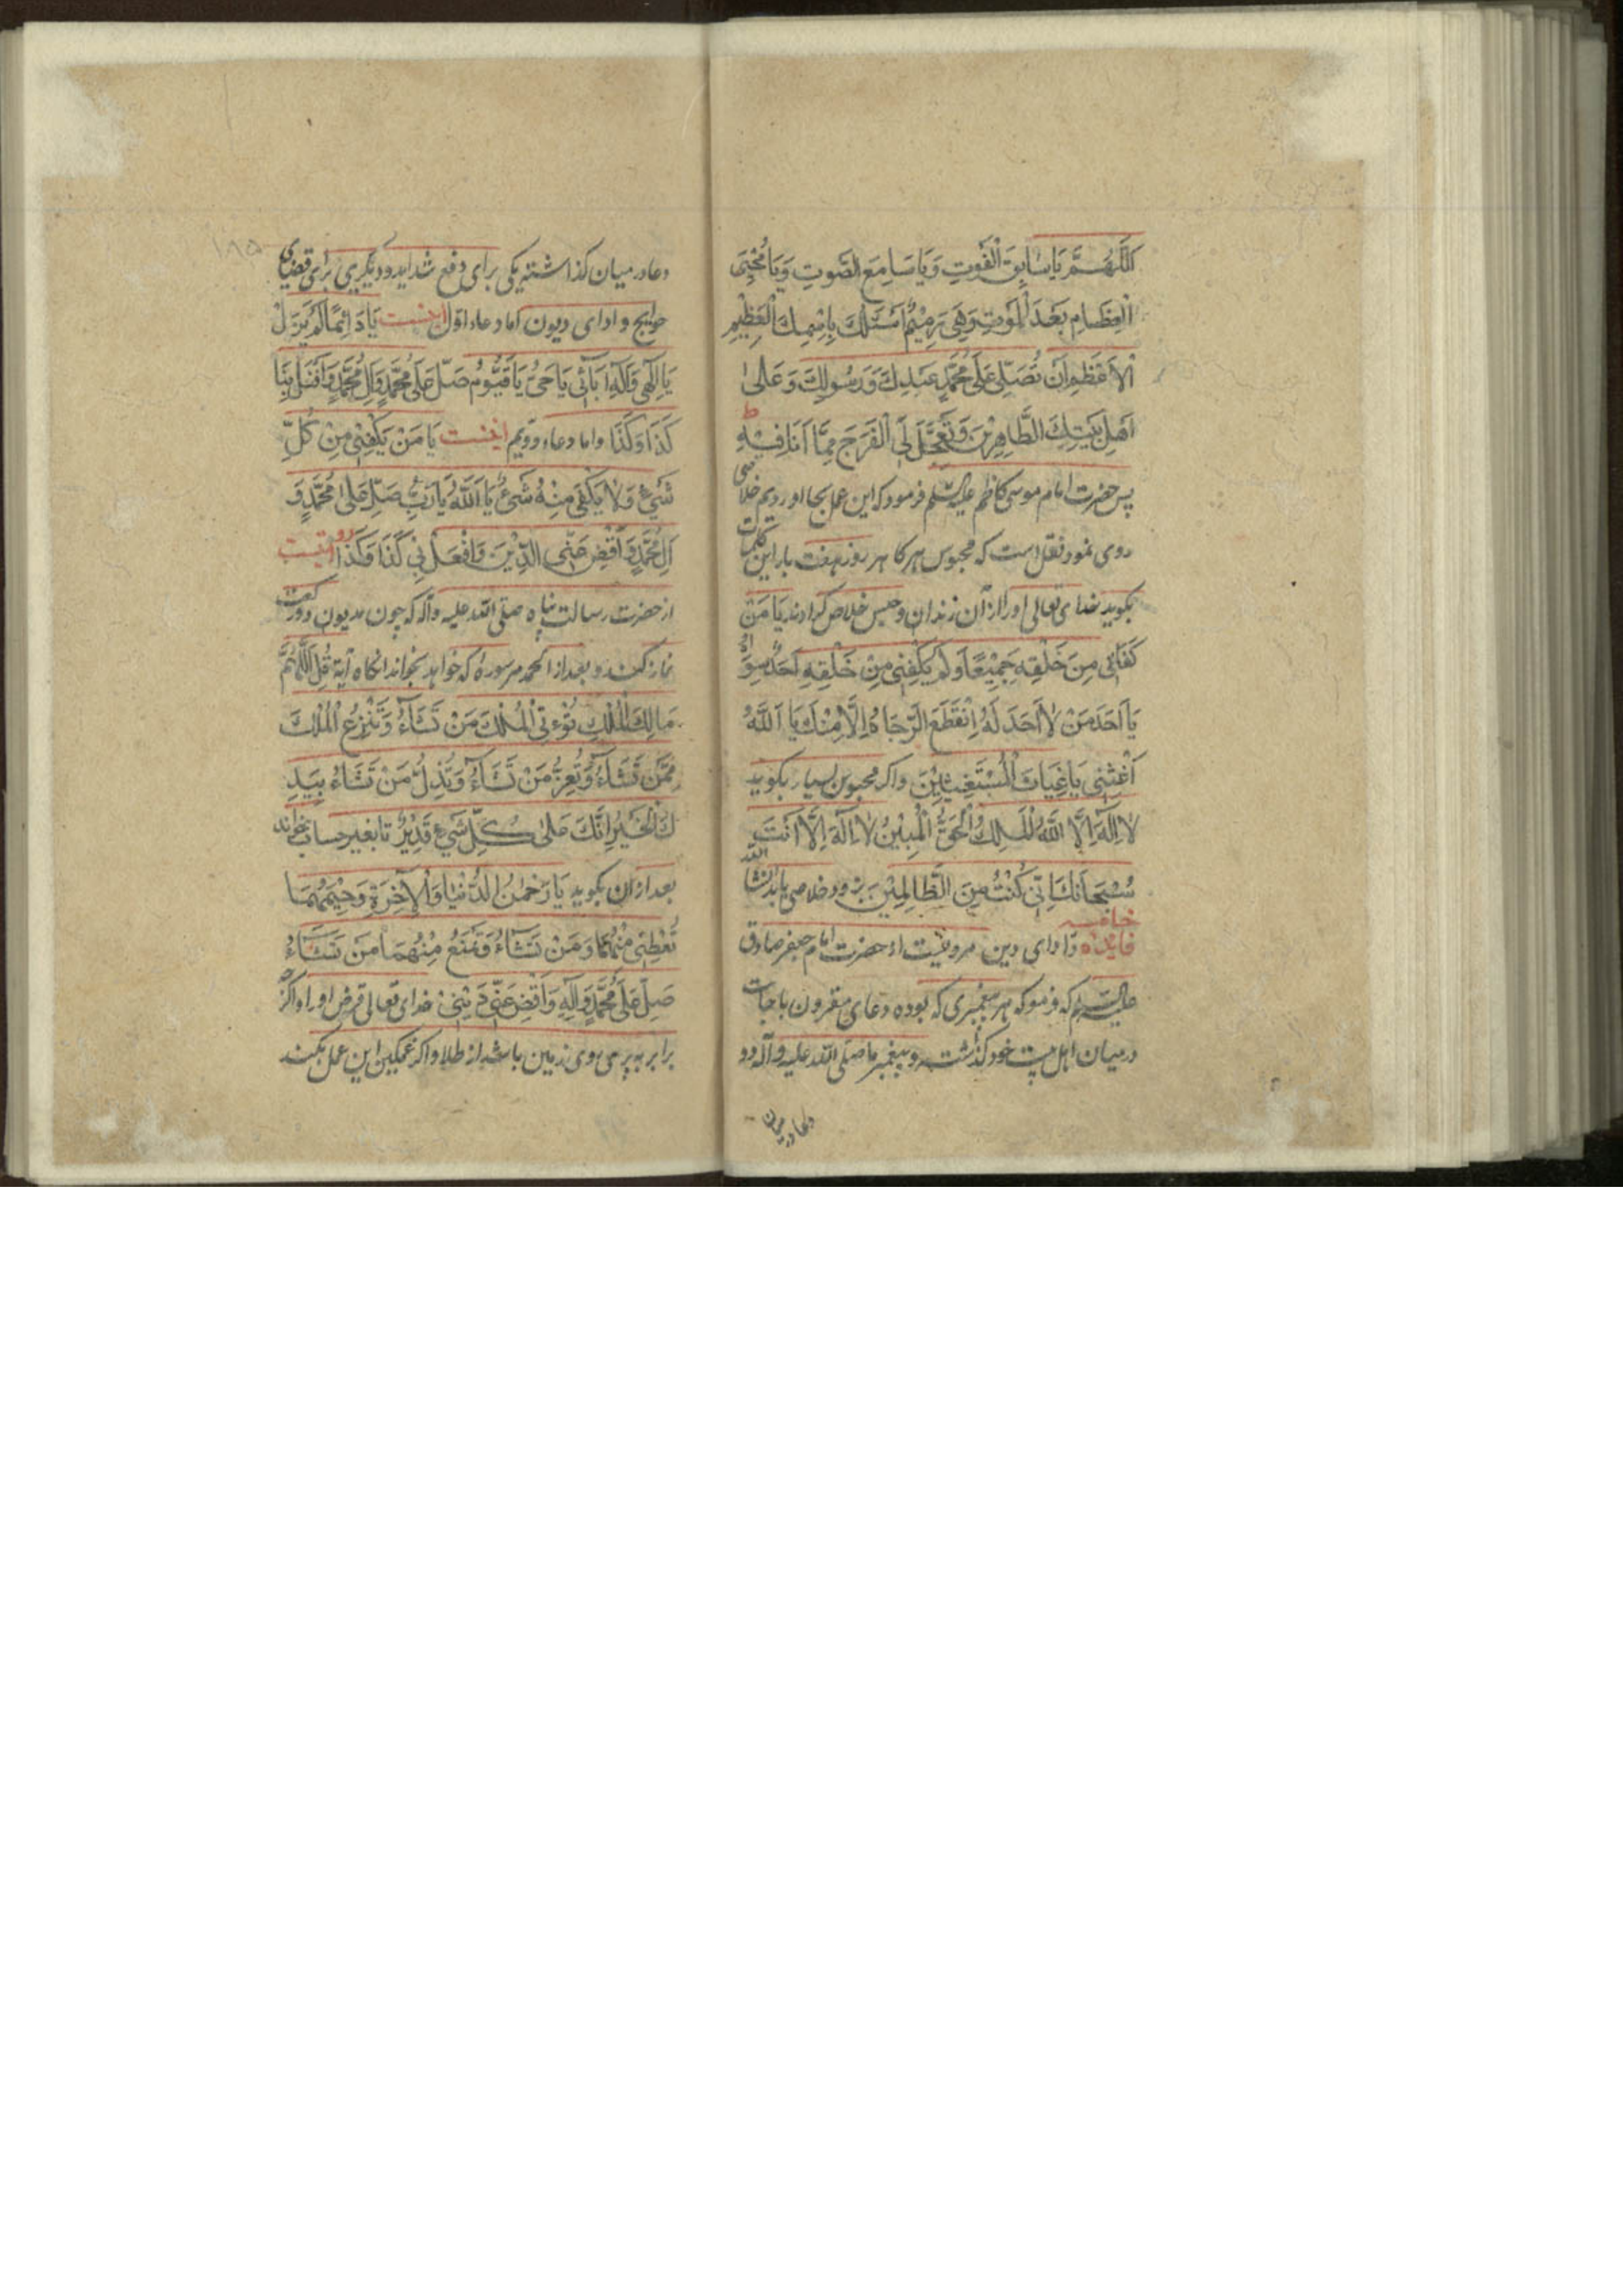 اَللّٰهُمَّ يَا سَابِقَ الْفَوْتِ وَيَا سَامِعَ الصَّوْتِ وَيَا مُحْيِيَ
الْعِظَامِ بَعْدَ الْمَوْتِ وَهِيَ رَمِيْمٌ اَسْئَلُكَ بِاسْمِكَ الْعَظِيْمِ
الْاَعْظَمِ اَنْ تُصَلِّيَ عَلٰى مُحَمَّدٍ عَبْدِكَ وَرَسُولِكَ وَعَلٰى
اَهْلِ بَيْتِكَ الطَّاهِرِيْنَ وَتُعَجِّلَ لِيَ الْفَرَجَ مِمَّا اَنَا فِيْهِ
پس حضرت امام موسی کاظم علیه السلم فرمود که این عمل بجا اوردیم خلاصی
روی نمود نقل است که محبوس هرکا هر روز هفت بار این کلمات
بکوید خدای تعالی او را از آن زندان و حبس خلاص کرادند يَا مَنْ
كَفَانِي مِنْ خَلْقِهِ جَمِيْعًا وَلَمْ يَكْفِنِي مِنْ خَلْقِهِ اَحَدٌ سِوَاهُ
يَا اَحَدَ مَنْ لَا اَحَدَ لَهُ اِنْقَطَعَ الرَّجَاءُ اِلَّا مِنْكَ يَا اَللّٰهُ
اَغِثْنِي يَا غِيَاثَ الْمُسْتَغِيْثِيْنَ واکر محبوس بسیار بکوید
لَا اِلٰهَ اِلَّا اللّٰهُ الْمَلِكُ الْحَقُّ الْمُبِيْنُ لَا اِلٰهَ اِلَّا اَنْتَ
سُبْحَانَكَ اِنِّي كُنْتُ مِنَ الظَّالِمِيْنَ بزودی خلاصی یابد انشا الله
فایده خامسه و ادای دین مرویست از حضرت امام جعفر صادق
علیه السلم که فرمو که هر پیغمبری که بوده دعای مقرون باجابت
درمیان اهل بیت خود کذاشته و پیغمبر ما صلی الله علیه و آله دو
دعا درمیان
دعا درمیان کذاشته یکی برای دفع شداید و دیکری برای قضای
حوایج و ادای دیون اما دعاء اول اینست يَا دَائِمًا لَمْ يَزَلْ
يَا اِلٰهِي وَاِلٰهَ اٰبَائِي يَا حَيُّ يَا قَيُّوْمُ صَلِّ عَلٰى مُحَمَّدٍ وَاٰلِ مُحَمَّدٍ وَافْعَلْ بِنَا
كَذَا وَكَذَا واما دعاء دویم اینست يَا مَنْ يَكْفِي مِنْ كُلِّ
شَيْءٍ وَلَا يَكْفِي مِنْهُ شَيْءٌ يَا اَللّٰهُ يَا رَبِّ صَلِّ عَلٰى مُحَمَّدٍ وَ
اٰلِ مُحَمَّدٍ وَاقْضِ عَنِّي الدَّيْنَ وَافْعَلْ بِي كَذَا وَكَذَا رویتست
از حضرت رسالت پناه صلی الله علیه وآله که چون مدیون دو رکعت
نماز کند و بعد از الحمد هر سوره که خواهد بخواند انکاه آیة قُلِ اللّٰهُمَّ
مَالِكَ الْمُلْكِ تُؤْتِي الْمُلْكَ مَنْ تَشَاءُ وَتَنْزِعُ الْمُلْكَ
مِمَّنْ تَشَاءُ وَتُعِزُّ مَنْ تَشَاءُ وَتُذِلُّ مَنْ تَشَاءُ بِيَدِ
كَ الْخَيْرُ اِنَّكَ عَلٰى كُلِّ شَيْءٍ قَدِيْرٌ تا بغیر حساب بخواند
بعد ازان بکوید يَا رَحْمٰنَ الدُّنْيَا وَالْاٰخِرَةِ وَرَحِيْمَهُمَا
تُعْطِي مِنْهُمَا مَنْ تَشَاءُ وَتَمْنَعُ مِنْهُمَا مَنْ تَشَاءُ
صَلِّ عَلٰى مُحَمَّدٍ وَاٰلِهِ وَاقْضِ عَنِّي دَيْنِي خدای تعالی قرض او را واکرچه
برابر به پری روی زمین باشد از طلا و اکر غمکین این عمل بکند
۱۸۵